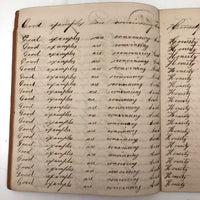 Good examples are convincing Honesty
Good examples are convincing Honesty
Good examples are convincing Honesty
Good examples are convincing Honesty
Good examples are convincing Honesty
Good examples are convincing Honesty
Good examples are convincing Honesty
Good examples are convincing Honesty
Good examples are convincing Honesty
Good examples are convincing Honesty
Good examples are convincing Honesty
Good examples are convincing Honesty
Good examples are convincing Honesty
Good examples are convincing Honesty
Good examples are convincing Honesty
Good examples are convincing Honesty
Good examples are convincing Honesty